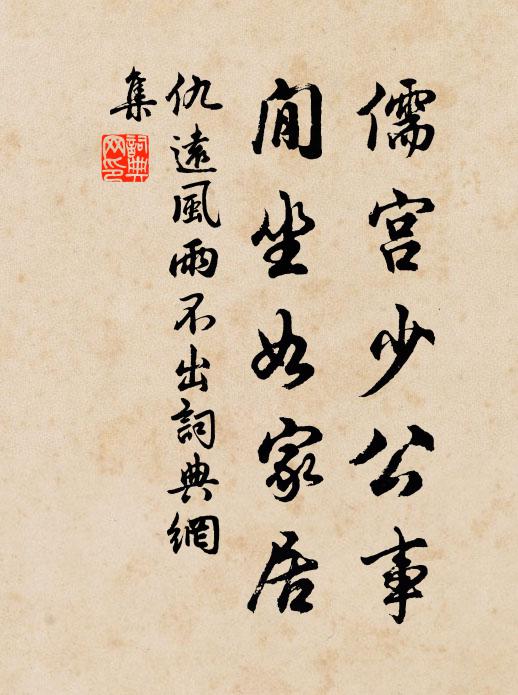 儒宫少公事
閒坐如家居
仇遠風雨不出詞典網
集
詞典网印